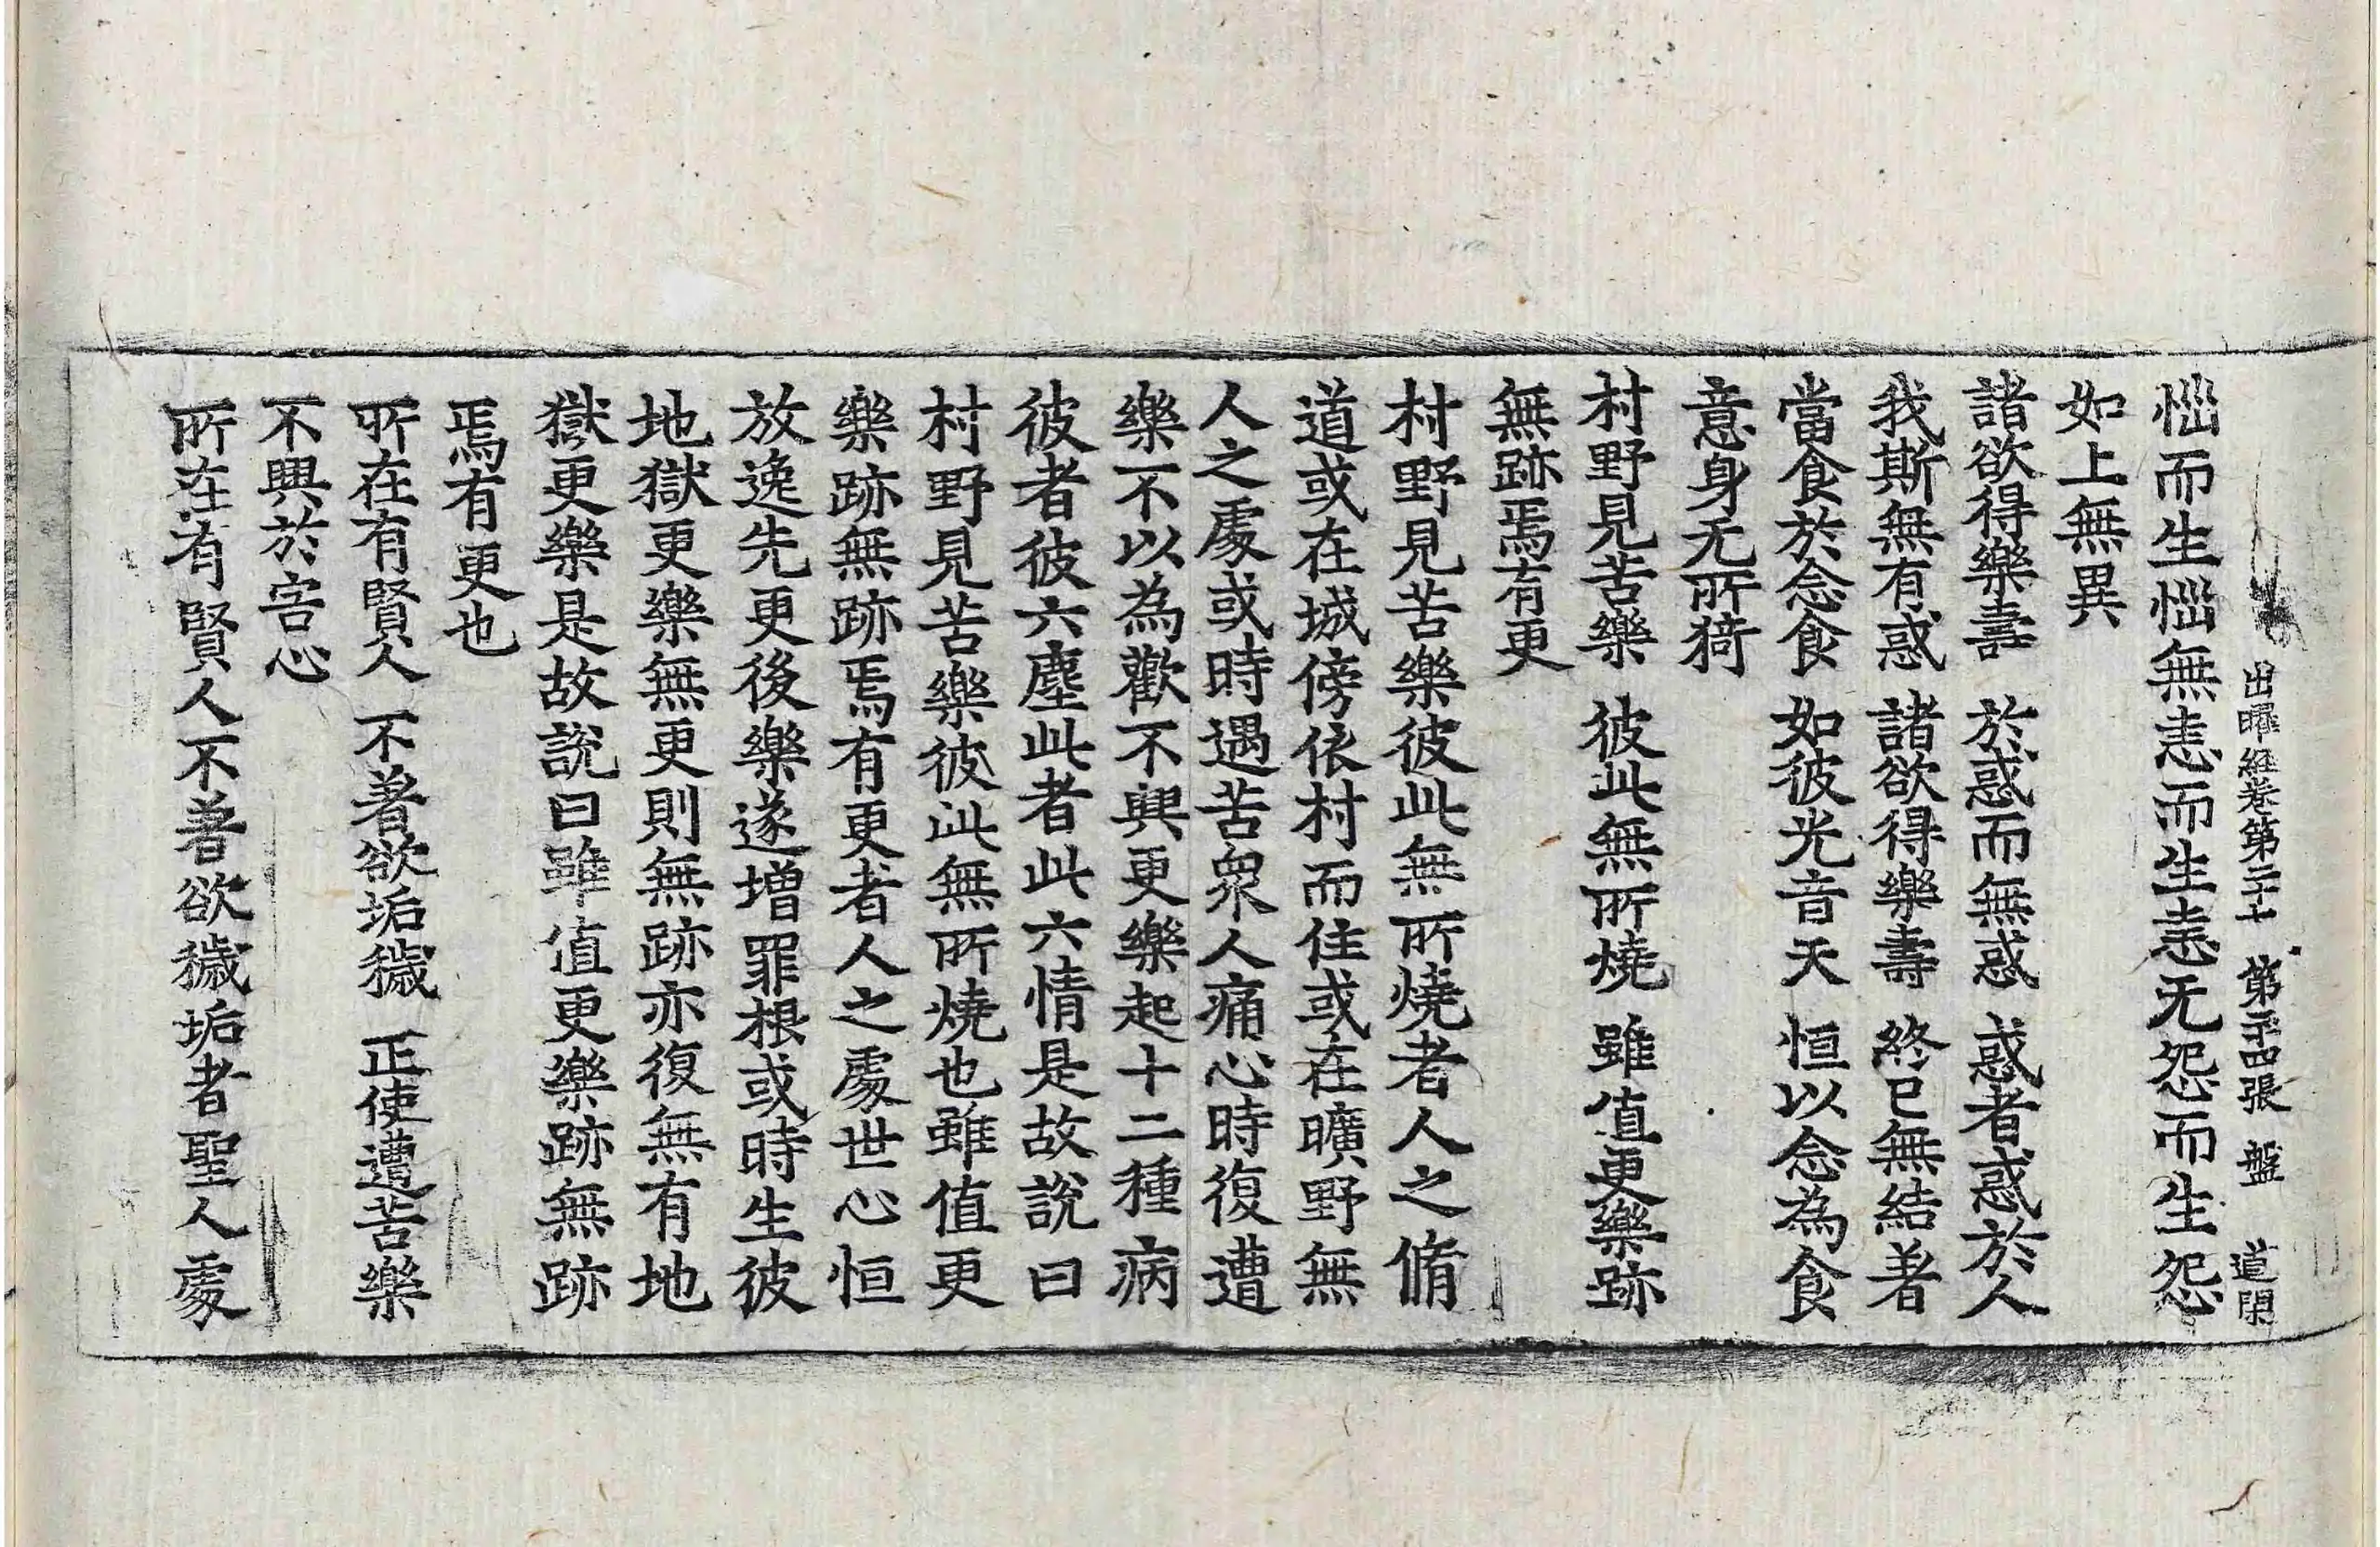 出曜經卷第二十七 第二十四張 盤 道閑
惱而生惱無恚而生恚无怨而生怨
如上無異
諸欲得樂壽 於惑而無惑 惑者惑於人
我斯無有惑 諸欲得樂壽 終已無結著
當食於念食 如彼光音天 恒以念為食
意身无所猗
村野見苦樂 彼此無所燒 雖值更樂跡
無跡焉有更
村野見苦樂彼此無所燒者人之脩
道或在城傍依村而住或在曠野無
人之處或時遇苦衆人痛心時復遭
樂不以為歡不興更樂起十二種病
彼者彼六塵此者此六情是故說曰
村野見苦樂彼此無所燒也雖值更
樂跡無跡焉有更者人之處世心恒
放逸先更後樂遂增罪根或時生彼
地獄更樂無更則無跡亦復無有地
獄更樂是故說曰雖值更樂跡無跡
焉有更也
所在有賢人 不著欲垢穢 正使遭苦樂
不興於害心
所在有賢人不著欲穢垢者聖人處